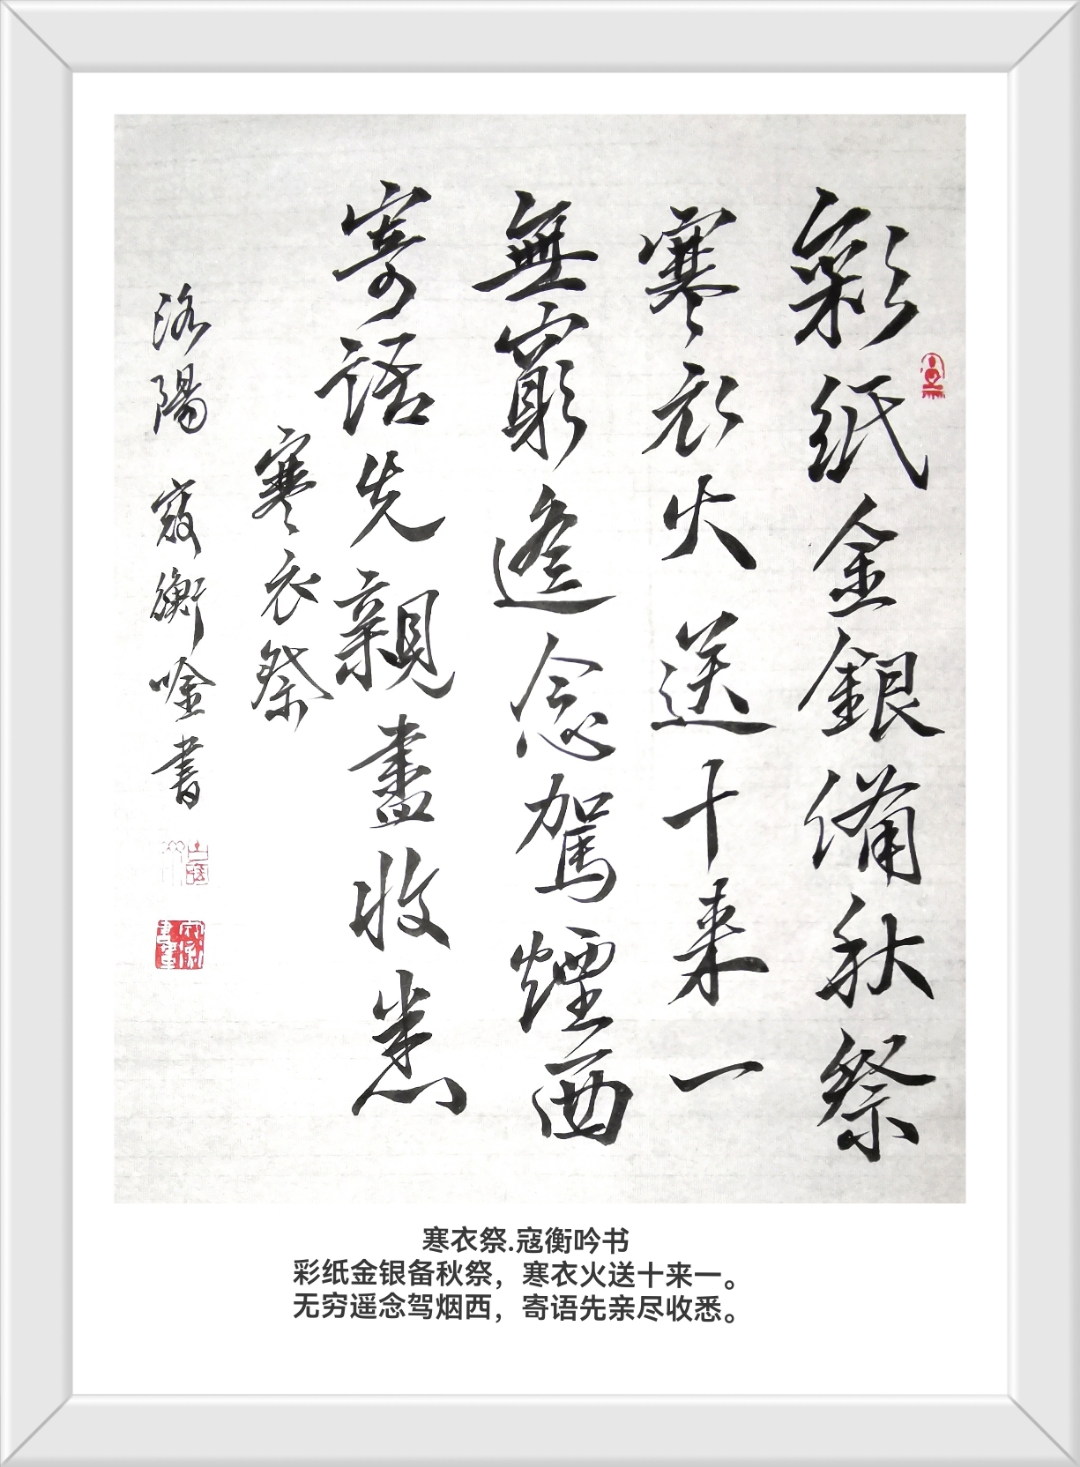 彩紙金銀備秋祭
寒衣火送十来一
無窮遙念駕煙西
寄語先親盡收悉
寒衣祭
洛陽 寇衡唫書
寒衣祭.寇衡吟书
彩纸金银备秋祭，寒衣火送十来一。
无穷遥念驾烟西，寄语先亲尽收悉。